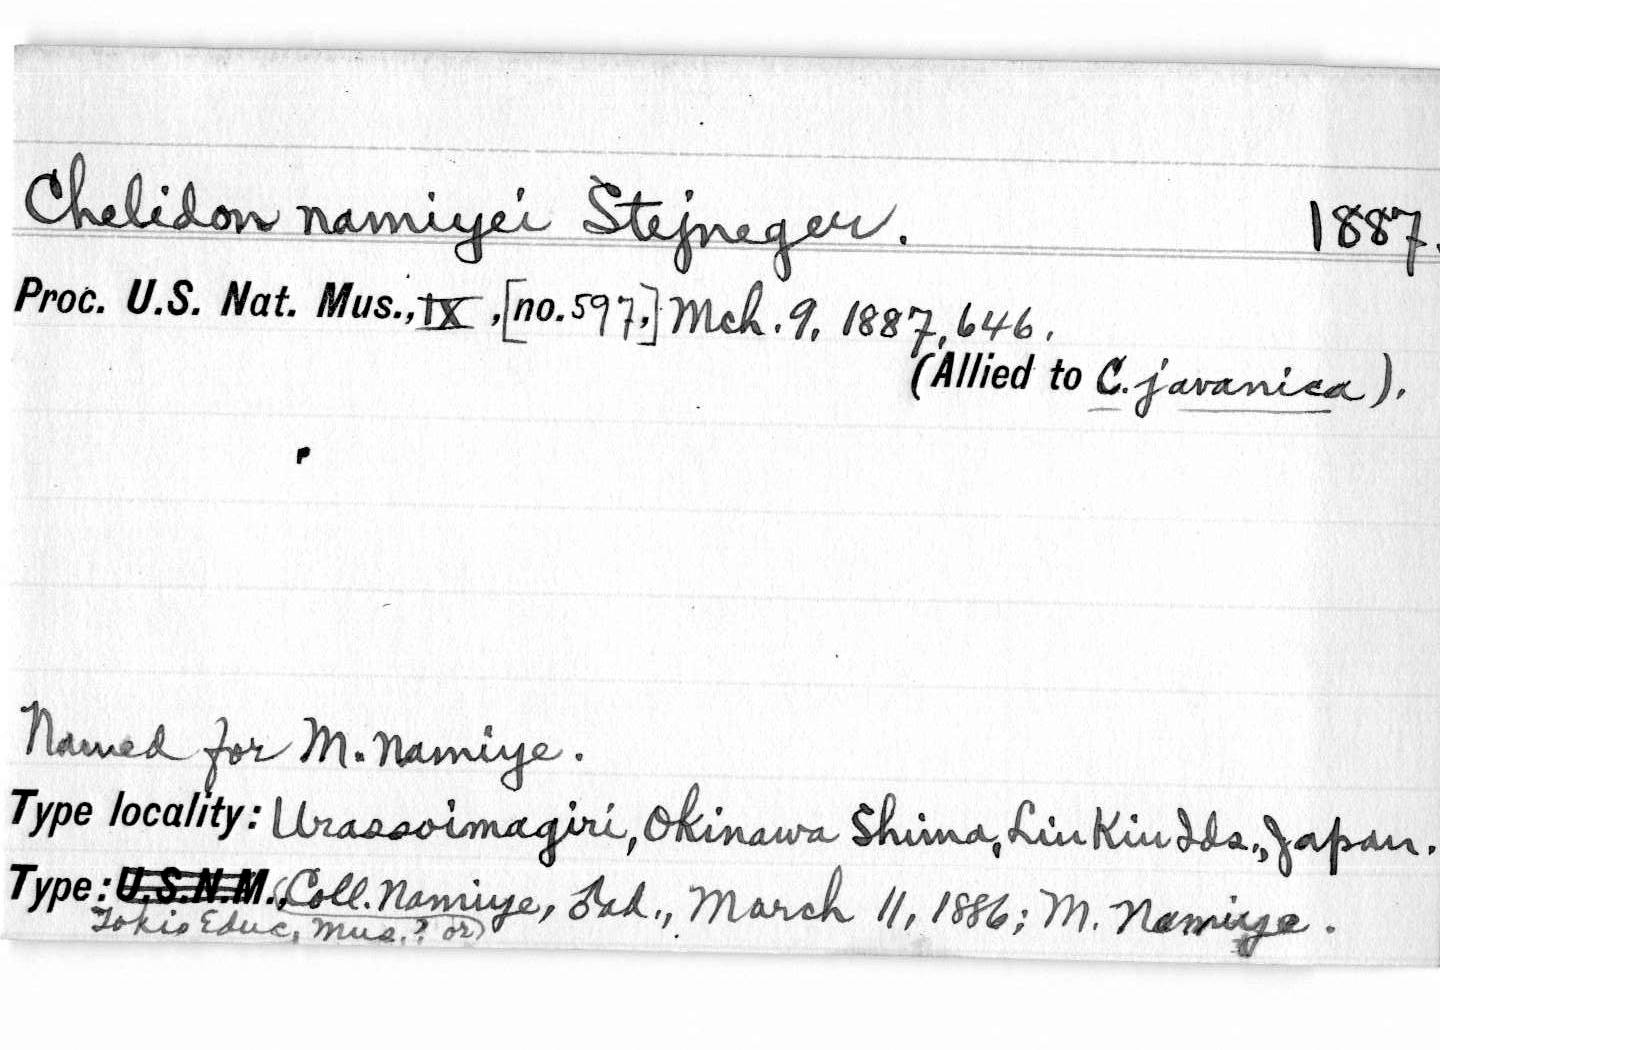 Chelidon namiyei Stejneger. 1887.
Proc. U.S. Nat. Mus., IX, [no. 597,] Mch. 9, 1887, 646.
(Allied to C. javanica).
Named for M. Namiye.
Type locality: Urassoimagiri, Okinawa Shima, Liu Kiu Ids., Japan.
Type: U.S.N.M., (Coll. Namiye, ad., March 11, 1886; M. Namiye.
Tokio Educ. Mus.? or)